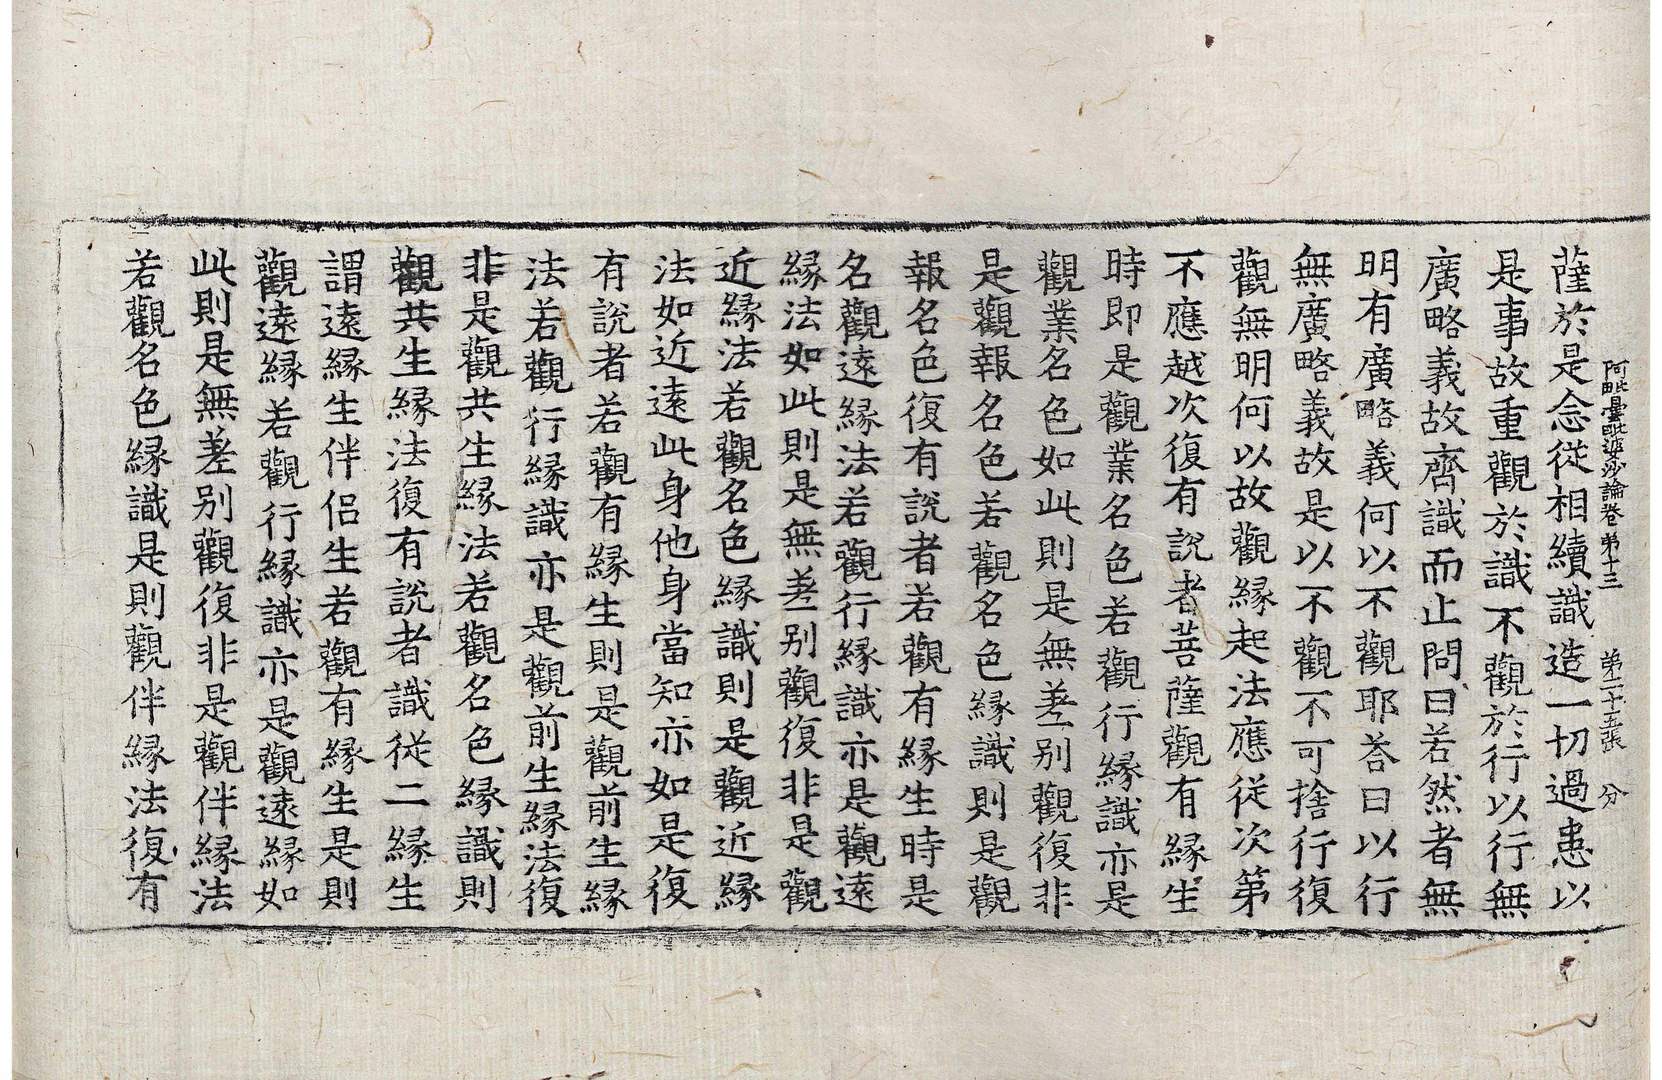 阿毗曇毗婆沙論卷第十三 第二十五張 分
薩於是念從相續識造一切過患以
是事故重觀於識不觀於行以行無
廣略義故齊識而止問曰若然者無
明有廣略義何以不觀耶荅曰以行
無廣略義故是以不觀不可捨行復
觀無明何以故觀緣起法應從次第
不應越次復有說者菩薩觀有緣生
時即是觀業名色若觀行緣識亦是
觀業名色如此則是無差別觀復非
是觀報名色若觀名色緣識則是觀
報名色復有說者若觀有緣生時是
名觀遠緣法若觀行緣識亦是觀遠
緣法如此則是無差別觀復非是觀
近緣法若觀名色緣識則是觀近緣
法如近遠此身他身當知亦如是復
有說者若觀有緣生則是觀前生緣
法若觀行緣識亦是觀前生緣法復
非是觀共生緣法若觀名色緣識則
觀共生緣法復有說者識從二緣生
謂遠緣生伴侶生若觀有緣生是則
觀遠緣若觀行緣識亦是觀遠緣如
此則是無差別觀復非是觀伴緣法
若觀名色緣識是則觀伴緣法復有